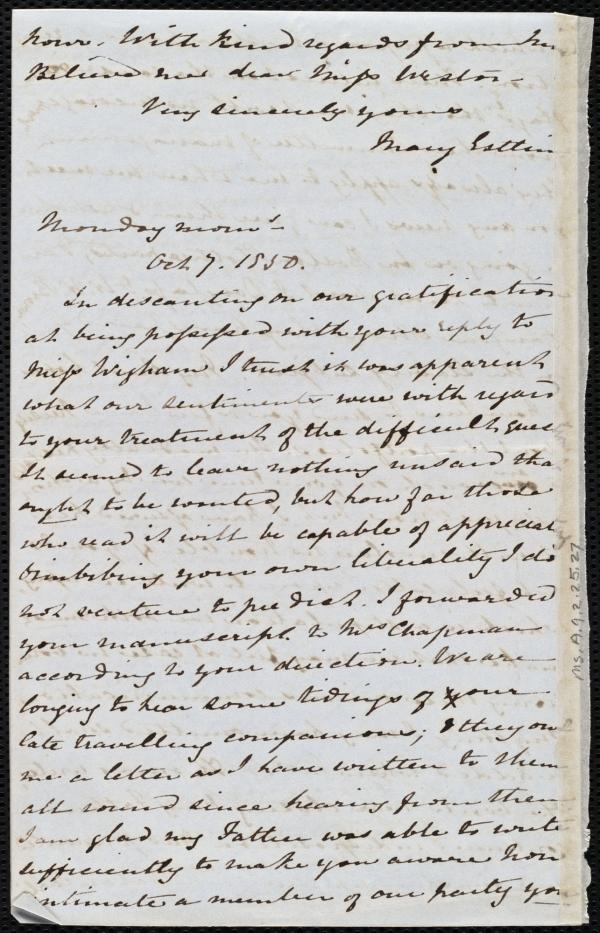 hours. With kind regards from
Believe me dear Miss Weston
Very sincerely yours
Mary Estlin
Monday morng
Oct 7. 1850.
In descanting on our gratification
at being possessed with your reply to
Miss Wigham I trust it was apparent
what our sentiments were with regard
to your treatment of the difficult ques
It seemed to leave nothing unsaid tha
ought to be wanted, but how far those
who read it will be capable of appreciat
& imbibing your own liberality I do
not venture to predict. I forwarded
your manuscript to Mrs Chapman
according to your direction. We are
longing to hear some tidings of your
late travelling companions; they owe
me a letter as I have written to them
all round since hearing from them
I am glad my Father was able to write
sufficiently to make you aware how
intimate a member of our party you
Ms. A. 9. 2. 25. 27